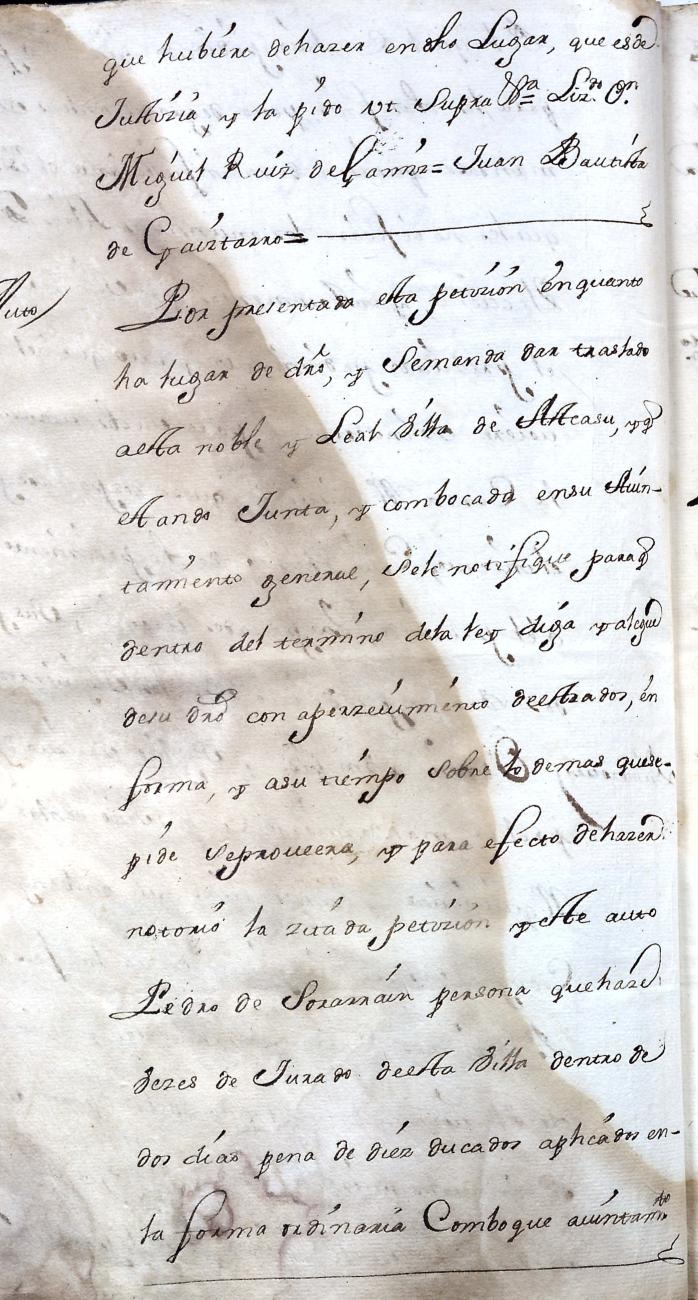 que hubiére dehazer endho Lugar, que esde
Justizia, y la pido vt. Supra Liz.do Dn.
Miguel Ruiz de Gamiz= Juan Bautista
de Gaiztarro=
Auto) Por presentada esta petizión enquanto
ha lugar de drō, y Semanda dar traslado
aesta noble y Leal Villa de Atcasu, yq
estando Junta, y combocada ensu Aiun-
tamiento general, sele notifique paraq
dentro del termino dela ley diga y alegue
desu drō con aperzeuimiénto deestrados, én
forma, y asu tiémpo sobre lo demas quese-
pide seproueera, y para efecto dehazer
notorió la zitada petizión yeste auto
Pedro de Sorarrain persona quehaze
vezes de Jurado deesta Villa dentro de
dos dias pena de diéz ducados aplicádos en-
la forma ordinaria Comboque aiuntam.to